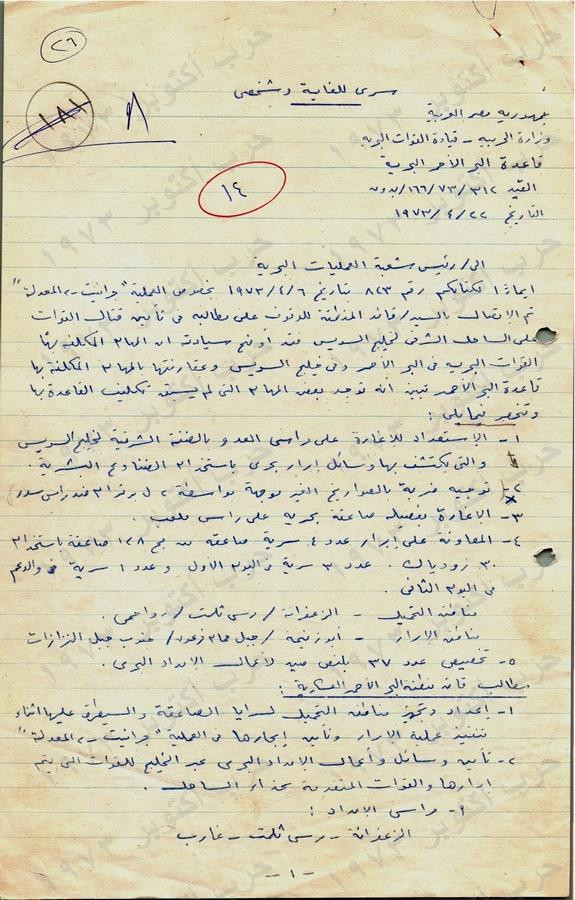 ٢٦
١٨١
١٤
سرى للغاية وشخصى
جمهورية مصر العربية
وزارة الحربية - قيادة القوات البحرية
قاعدة البحر الأحمر البحرية
القيد ٣١٢/٧٣/١٦٦/بدون
التاريخ ٢٢/٤/١٩٧٣
الى/ رئيس شعبة العمليات البحرية
ايماءا لكتابكم رقم ٨٢٣ بتاريخ ١٩٧٣/٤/٦ بخصوص العملية "جرانيت - ٢ المعدلة"
تم الاتصال بالسيد/ قائد المنطقة للوقوف على مطالبه فى تأمين قتال القوات
على الساحل الشرقى لخليج السويس فقد أوضح سيادته ان المهام المكلفه بها
القوات البحريه فى البحر الأحمر وفى خليج السويس وبمقارنتها بالمهام المكلفه بها
قاعدة البحر الأحمر تبين أنه توجد بعض المهام التى لم يسبق تكليف القاعدة بها
وتنحصر فيما يلى :
١- الاستعداد للاغارة على مراسى العدو بالضفة الشرقية لخليج السويس
والتى يكتشف بها وسائل ابرار بحرى باستخدام الضفادع البشرية .
٢- توجيه ضربة بالصواريخ الغير موجهة بواسطة ٢ ل ضد رأس سدر
٣- الاغارة بفصيلة صاعقة بحريه على راس ملعب
٤- المعاونة على ابرار عدد ٤ سرية صاعقه من مج ١٢٨ صاعقة باستخدام
٣٠ زودياك . عدد ٣ سرية فى اليوم الأول وعدد ١ سرية
فى اليوم الثانى .
مناطق التحميل - الزعفرانة / رأس ثلمت /
مناطق الابرار - أبوزنيمة / جبل حمام فرعون / جنوب جبل الزازات
٥- تخصيص عدد ٣٧ بلنص صيد لأعمال الامداد البحرى .
مطالب قائد منطقة البحر الأحمر العسكرية :
١- إعداد وتجهيز مناطق التحميل لسرايا الصاعقة والسيطرة عليها اثناء
تنفيذ عملية الابرار وتأمين إبحارها فى العملية "جرانيت - ٢ المعدلة"
٢- تأمين وسائل وأعمال الامداد البحرى عبر الخليج للقوات التى يتم
ابرارها والقوات المتقدمة بحذاء الساحل .
٩- مراسى الامداد :
الزعفرانة - رأس ثلمت - غارب
- ١ -
حرب أكتوبر ١٩٧٣